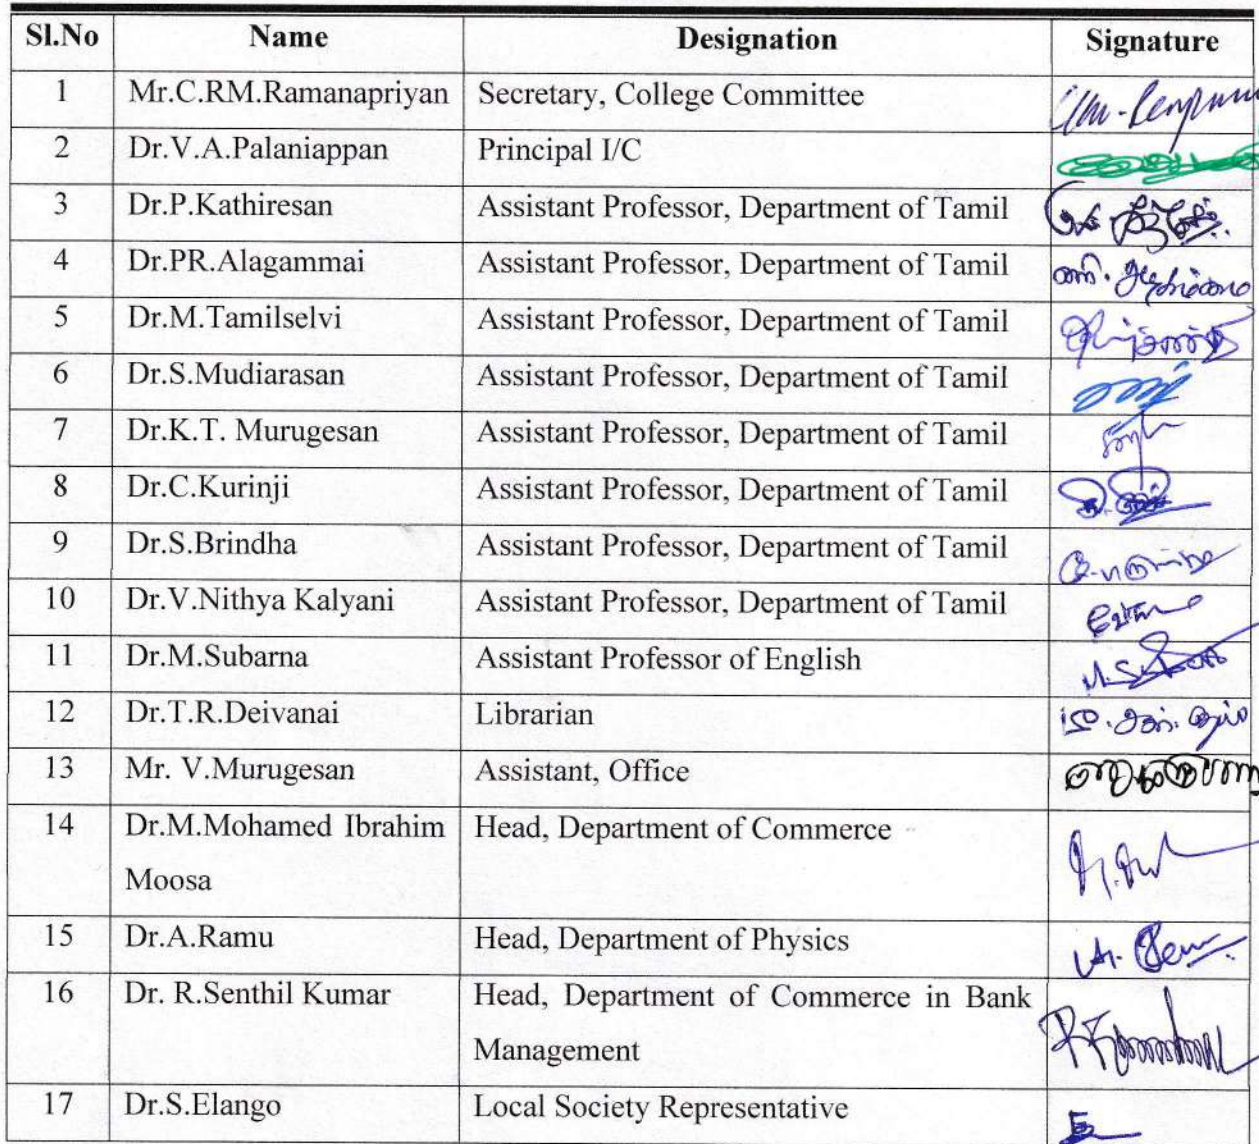 Sl.No Name Designation Signature
1 Mr.C.RM.Ramanapriyan Secretary, College Committee
2 Dr.V.A.Palaniappan Principal I/C
3 Dr.P.Kathiresan Assistant Professor, Department of Tamil
4 Dr.PR.Alagammai Assistant Professor, Department of Tamil
5 Dr.M.Tamilselvi Assistant Professor, Department of Tamil
6 Dr.S.Mudiarasan Assistant Professor, Department of Tamil
7 Dr.K.T. Murugesan Assistant Professor, Department of Tamil
8 Dr.C.Kurinji Assistant Professor, Department of Tamil
9 Dr.S.Brindha Assistant Professor, Department of Tamil
10 Dr.V.Nithya Kalyani Assistant Professor, Department of Tamil
11 Dr.M.Subarna Assistant Professor of English
12 Dr.T.R.Deivanai Librarian
13 Mr. V.Murugesan Assistant, Office
14 Dr.M.Mohamed Ibrahim Head, Department of Commerce
Moosa
15 Dr.A.Ramu Head, Department of Physics
16 Dr. R.Senthil Kumar Head, Department of Commerce in Bank
Management
17 Dr.S.Elango Local Society Representative